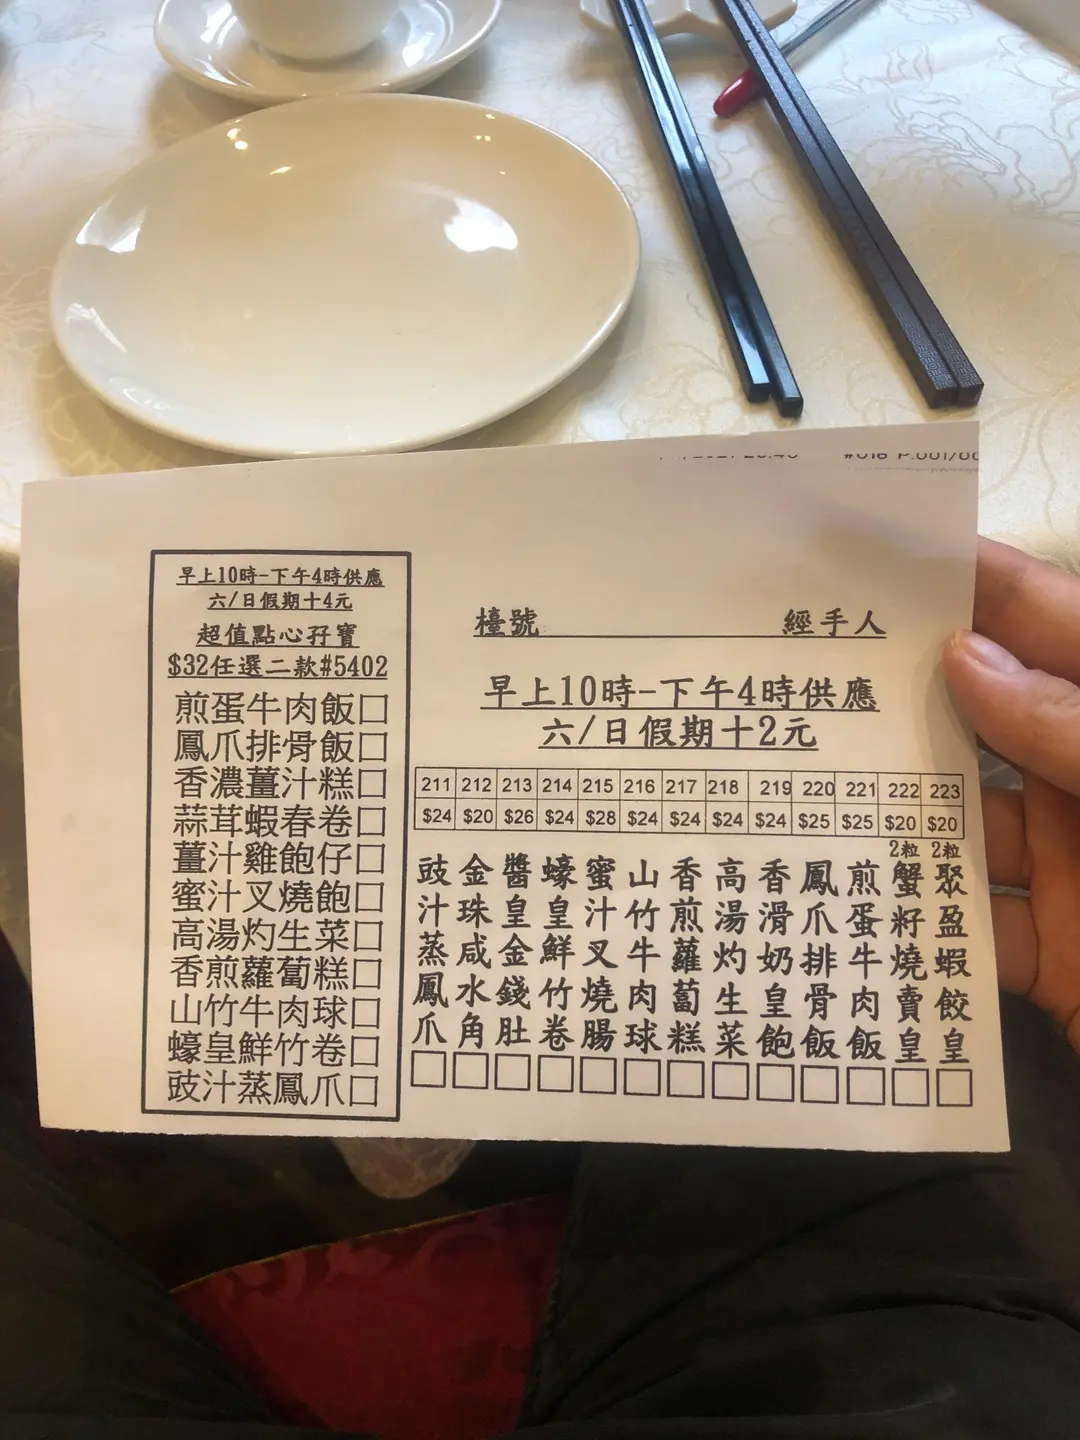 早上10時-下午4時供應
六/日假期十4元
超值點心孖寶
$32任選二款#5402
煎蛋牛肉飯□
鳳爪排骨飯□
香濃薑汁糕□
蒜茸蝦春卷□
薑汁雞飽仔□
蜜汁叉燒飽□
高湯灼生菜□
香煎蘿蔔糕□
山竹牛肉球□
蠔皇鮮竹卷□
豉汁蒸鳳爪□
檯號 經手人
早上10時-下午4時供應
六/日假期十2元
211 212 213 214 215 216 217 218 219 220 221 222 223
$24 $20 $26 $24 $28 $24 $24 $24 $24 $25 $25 $20 $20
2粒 2粒
豉汁蒸鳳爪□
金珠咸水角□
醬皇金錢肚□
蠔皇鮮竹卷□
蜜汁叉燒腸□
山竹牛肉球□
香煎蘿蔔糕□
高湯灼生菜□
香滑奶皇飽□
鳳爪排骨飯□
煎蛋牛肉飯□
蟹籽燒賣皇□
聚盈蝦餃皇□